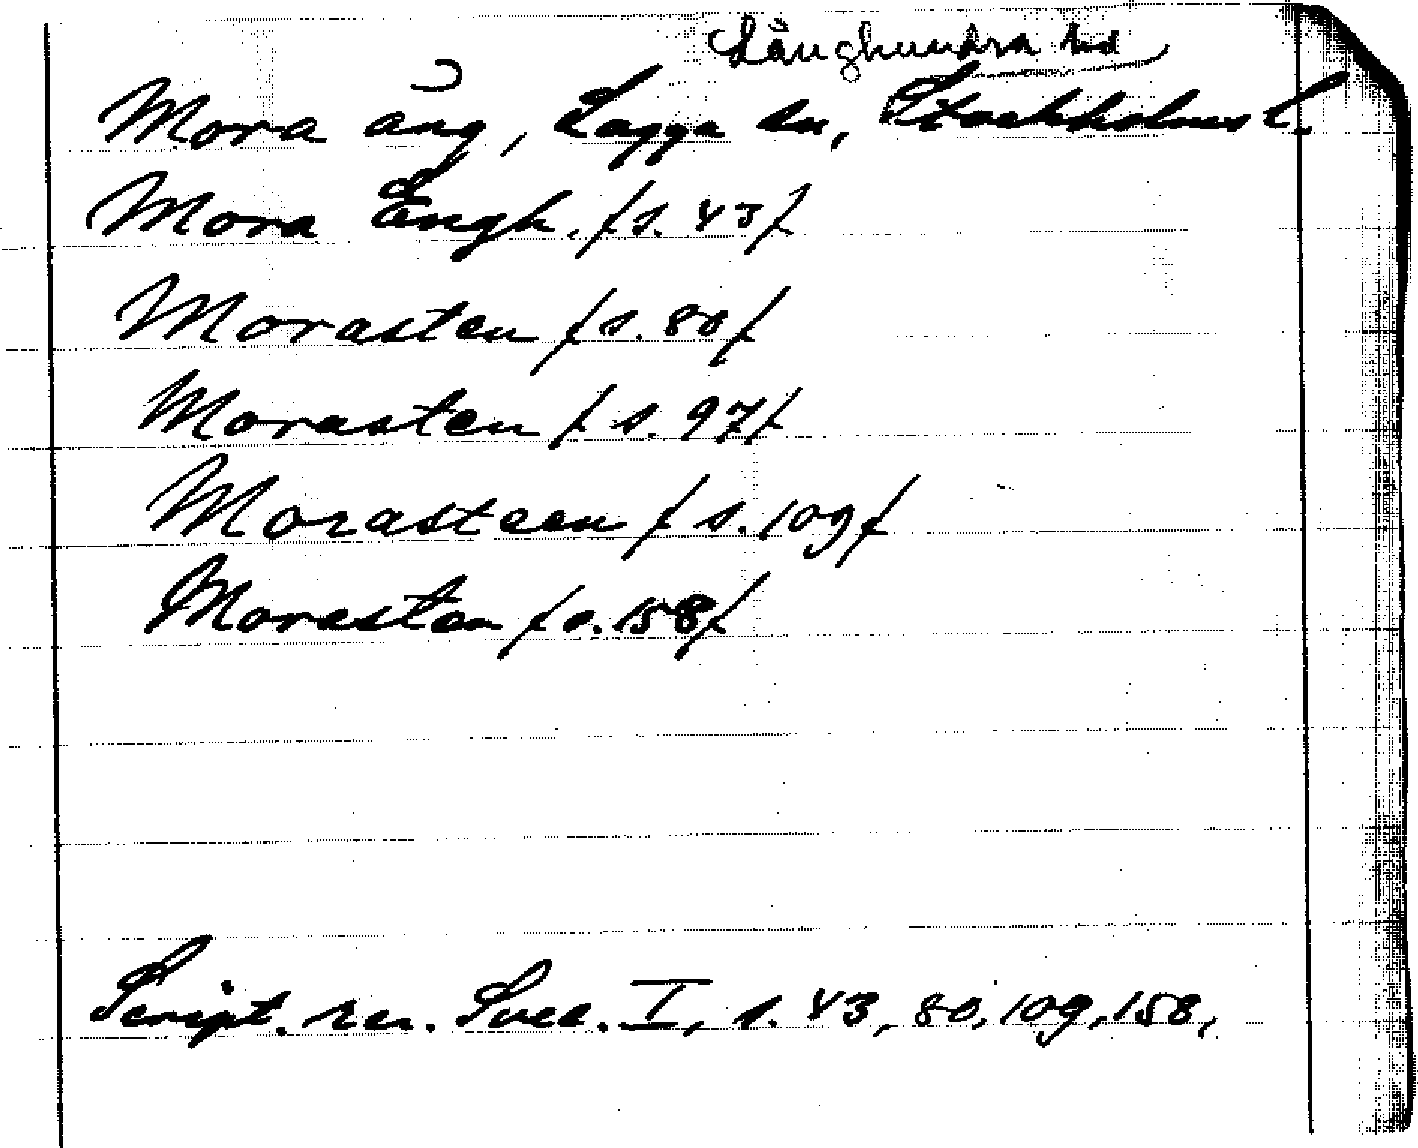 Långhundra hd
Mora äng, Lagga sn, Stockholms l.
Mora Ængh. /s. 43/
Morasten /s. 80/
Morasten /s. 97/
Morasteen /s. 109/
Morasten /s. 158/
Script. rer. Svec. I, s. 43, 80, 109, 158,